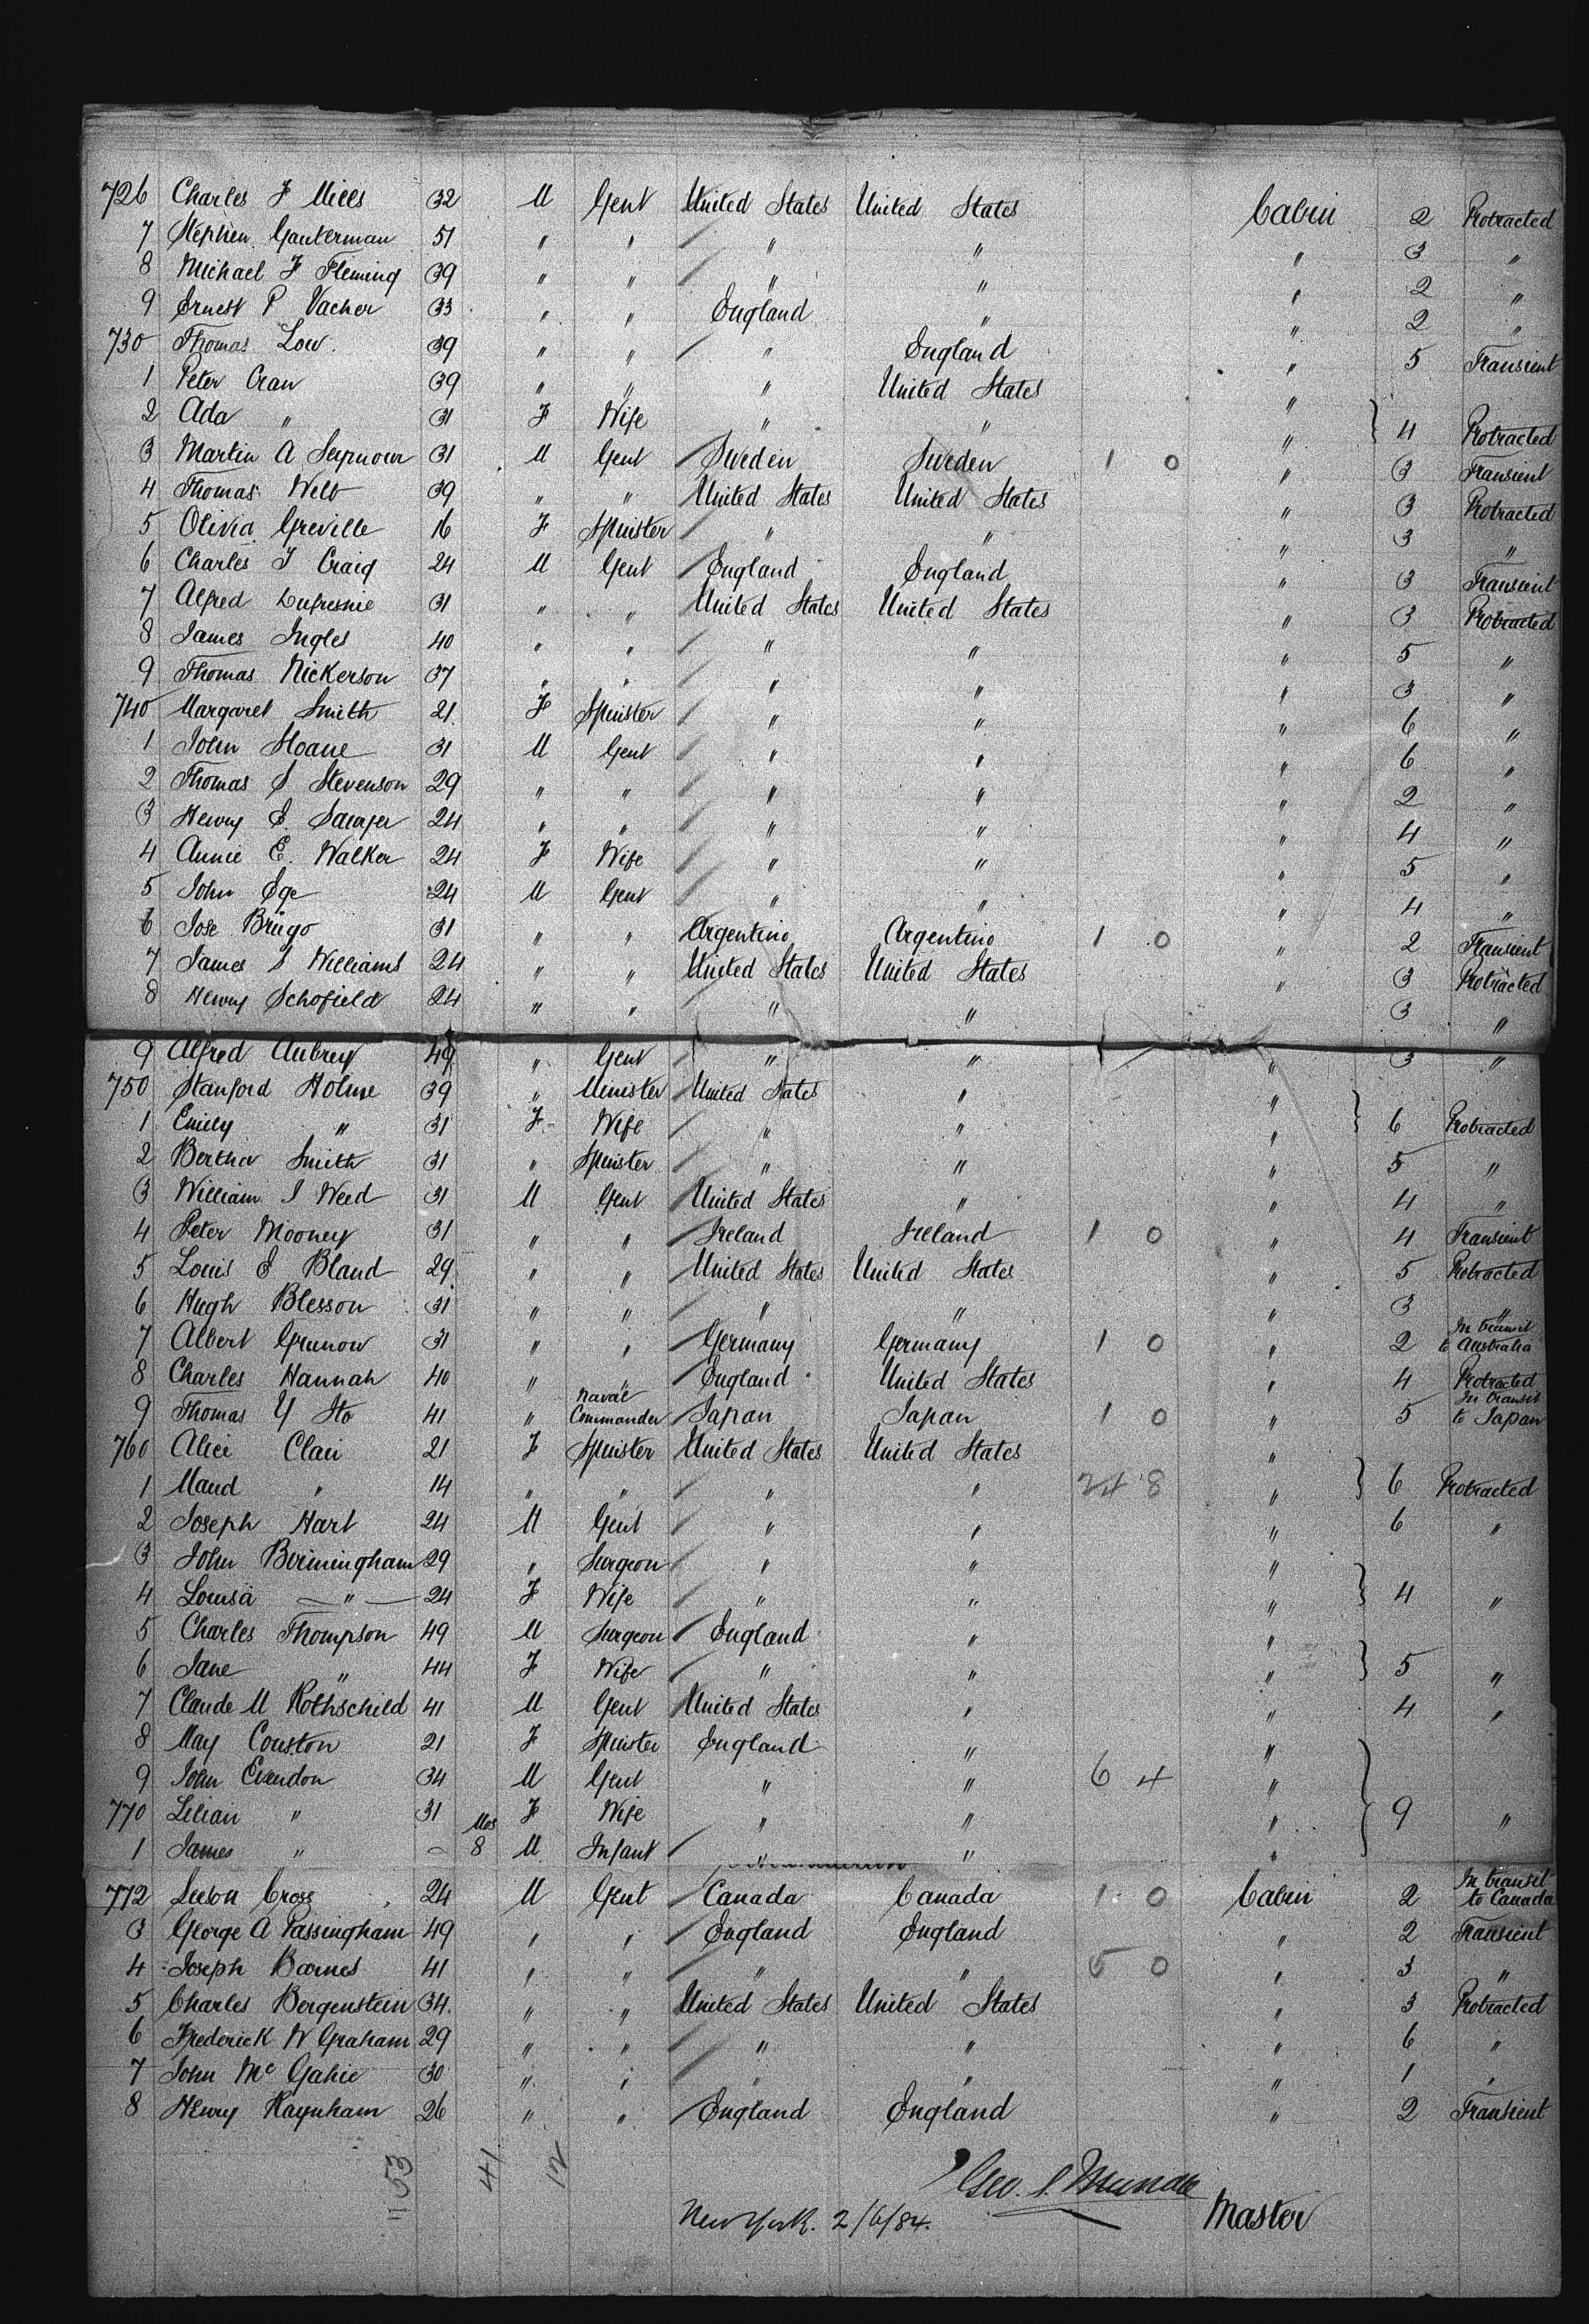 726 Charles F Mills 32 M Gent United States United States Cabin 2 Protracted
7 Stephen Gauterman 51 " " " " " 3 "
8 Michael F Fleming 39 " " " " " 2 "
9 Ernest P Vacher 33 " " England " " 2 "
730 Thomas Low 39 " " " England " 5 Transient
1 Peter Cran 39 " " " United States "
2 Ada " 31 F Wife " " " } 4 Protracted
3 Martin A Seymour 31 M Gent Sweden Sweden 1 0 " 3 Transient
4 Thomas Welb 39 " " United States United States " 3 Protracted
5 Olivia Greville 16 F Spinster " " " 3 "
6 Charles J Craig 24 M Gent England England " 3 Transient
7 Alfred Dufresnie 31 " " United States United States " 3 Protracted
8 James Ingles 40 " " " " " 5 "
9 Thomas Nickerson 37 " " " " " 3 "
740 Margaret Smith 21 F Spinster " " " 6 "
1 John Sloane 31 M Gent " " " 6 "
2 Thomas S Stevenson 29 " " " " " 2 "
3 Henry E Sawyer 24 " " " " " 4 "
4 Annie E. Walker 24 F Wife " " " 5 "
5 John Ege 24 M Gent " " " 4 "
6 Jose Brügo 31 " " Argentino Argentino 1 0 " 2 Transient
7 James S Williams 24 " " United States United States " 3 Protracted
8 Henry Schofield 24 " " " " 3 "
9 Alfred Aubrey 49 " Gent " " " 3 "
750 Stanford Holme 39 " Minister United States " "
1 Emily " 31 F Wife " " " } 6 Protracted
2 Bertha Smith 31 " Spinster " " " 5 "
3 William J Weed 31 M Gent United States " " 4 "
4 Peter Mooney 31 " " Ireland Ireland 1 0 " 4 Transient
5 Louis E Bland 29 " " United States United States " 5 Protracted
6 Hugh Blesson 31 " " " " " 3 "
7 Albert Grunow 31 " " Germany Germany 1 0 " 2 In transit to Australia
8 Charles Hannah 40 " " England United States " 4 Protracted
9 Thomas Y Ito 41 " Naval Commander Japan Japan 1 0 " 5 In transit to Japan
760 Alice Clair 21 F Spinster United States United States "
1 Maud " 14 " " " " 24 8 " } 6 Protracted
2 Joseph Hart 24 M Gent " " " 6 "
3 John Birmingham 29 " Surgeon " " "
4 Louisa " 24 F Wife " " " } 4 "
5 Charles Thompson 49 M Surgeon England " "
6 Jane " 44 F Wife " " " } 5 "
7 Claude M Rothschild 41 M Gent United States " " 4 "
8 May Couston 21 F Spinster England " "
9 John Evendon 34 M Gent " " 6 4 "
770 Lilian " 31 F Wife " " " } 9 "
1 James " – 8 Mos M Infant " " "
772 Leeson Cross 24 M Gent Canada Canada 1 0 Cabin 2 In transit to Canada
3 George A Passingham 49 " " England England " 2 Transient
4 Joseph Barnes 41 " " " " 5 0 " 3 "
5 Charles Bergenstein 34 " " United States United States " 3 Protracted
6 Frederick W Graham 29 " " " " " 6 "
7 John McGahie 30 " " " " " 1 "
8 Henry Raynham 26 " " England England " 2 Transient
53 41 12
Geo. S. Mundle
New York. 2/6/84. Master